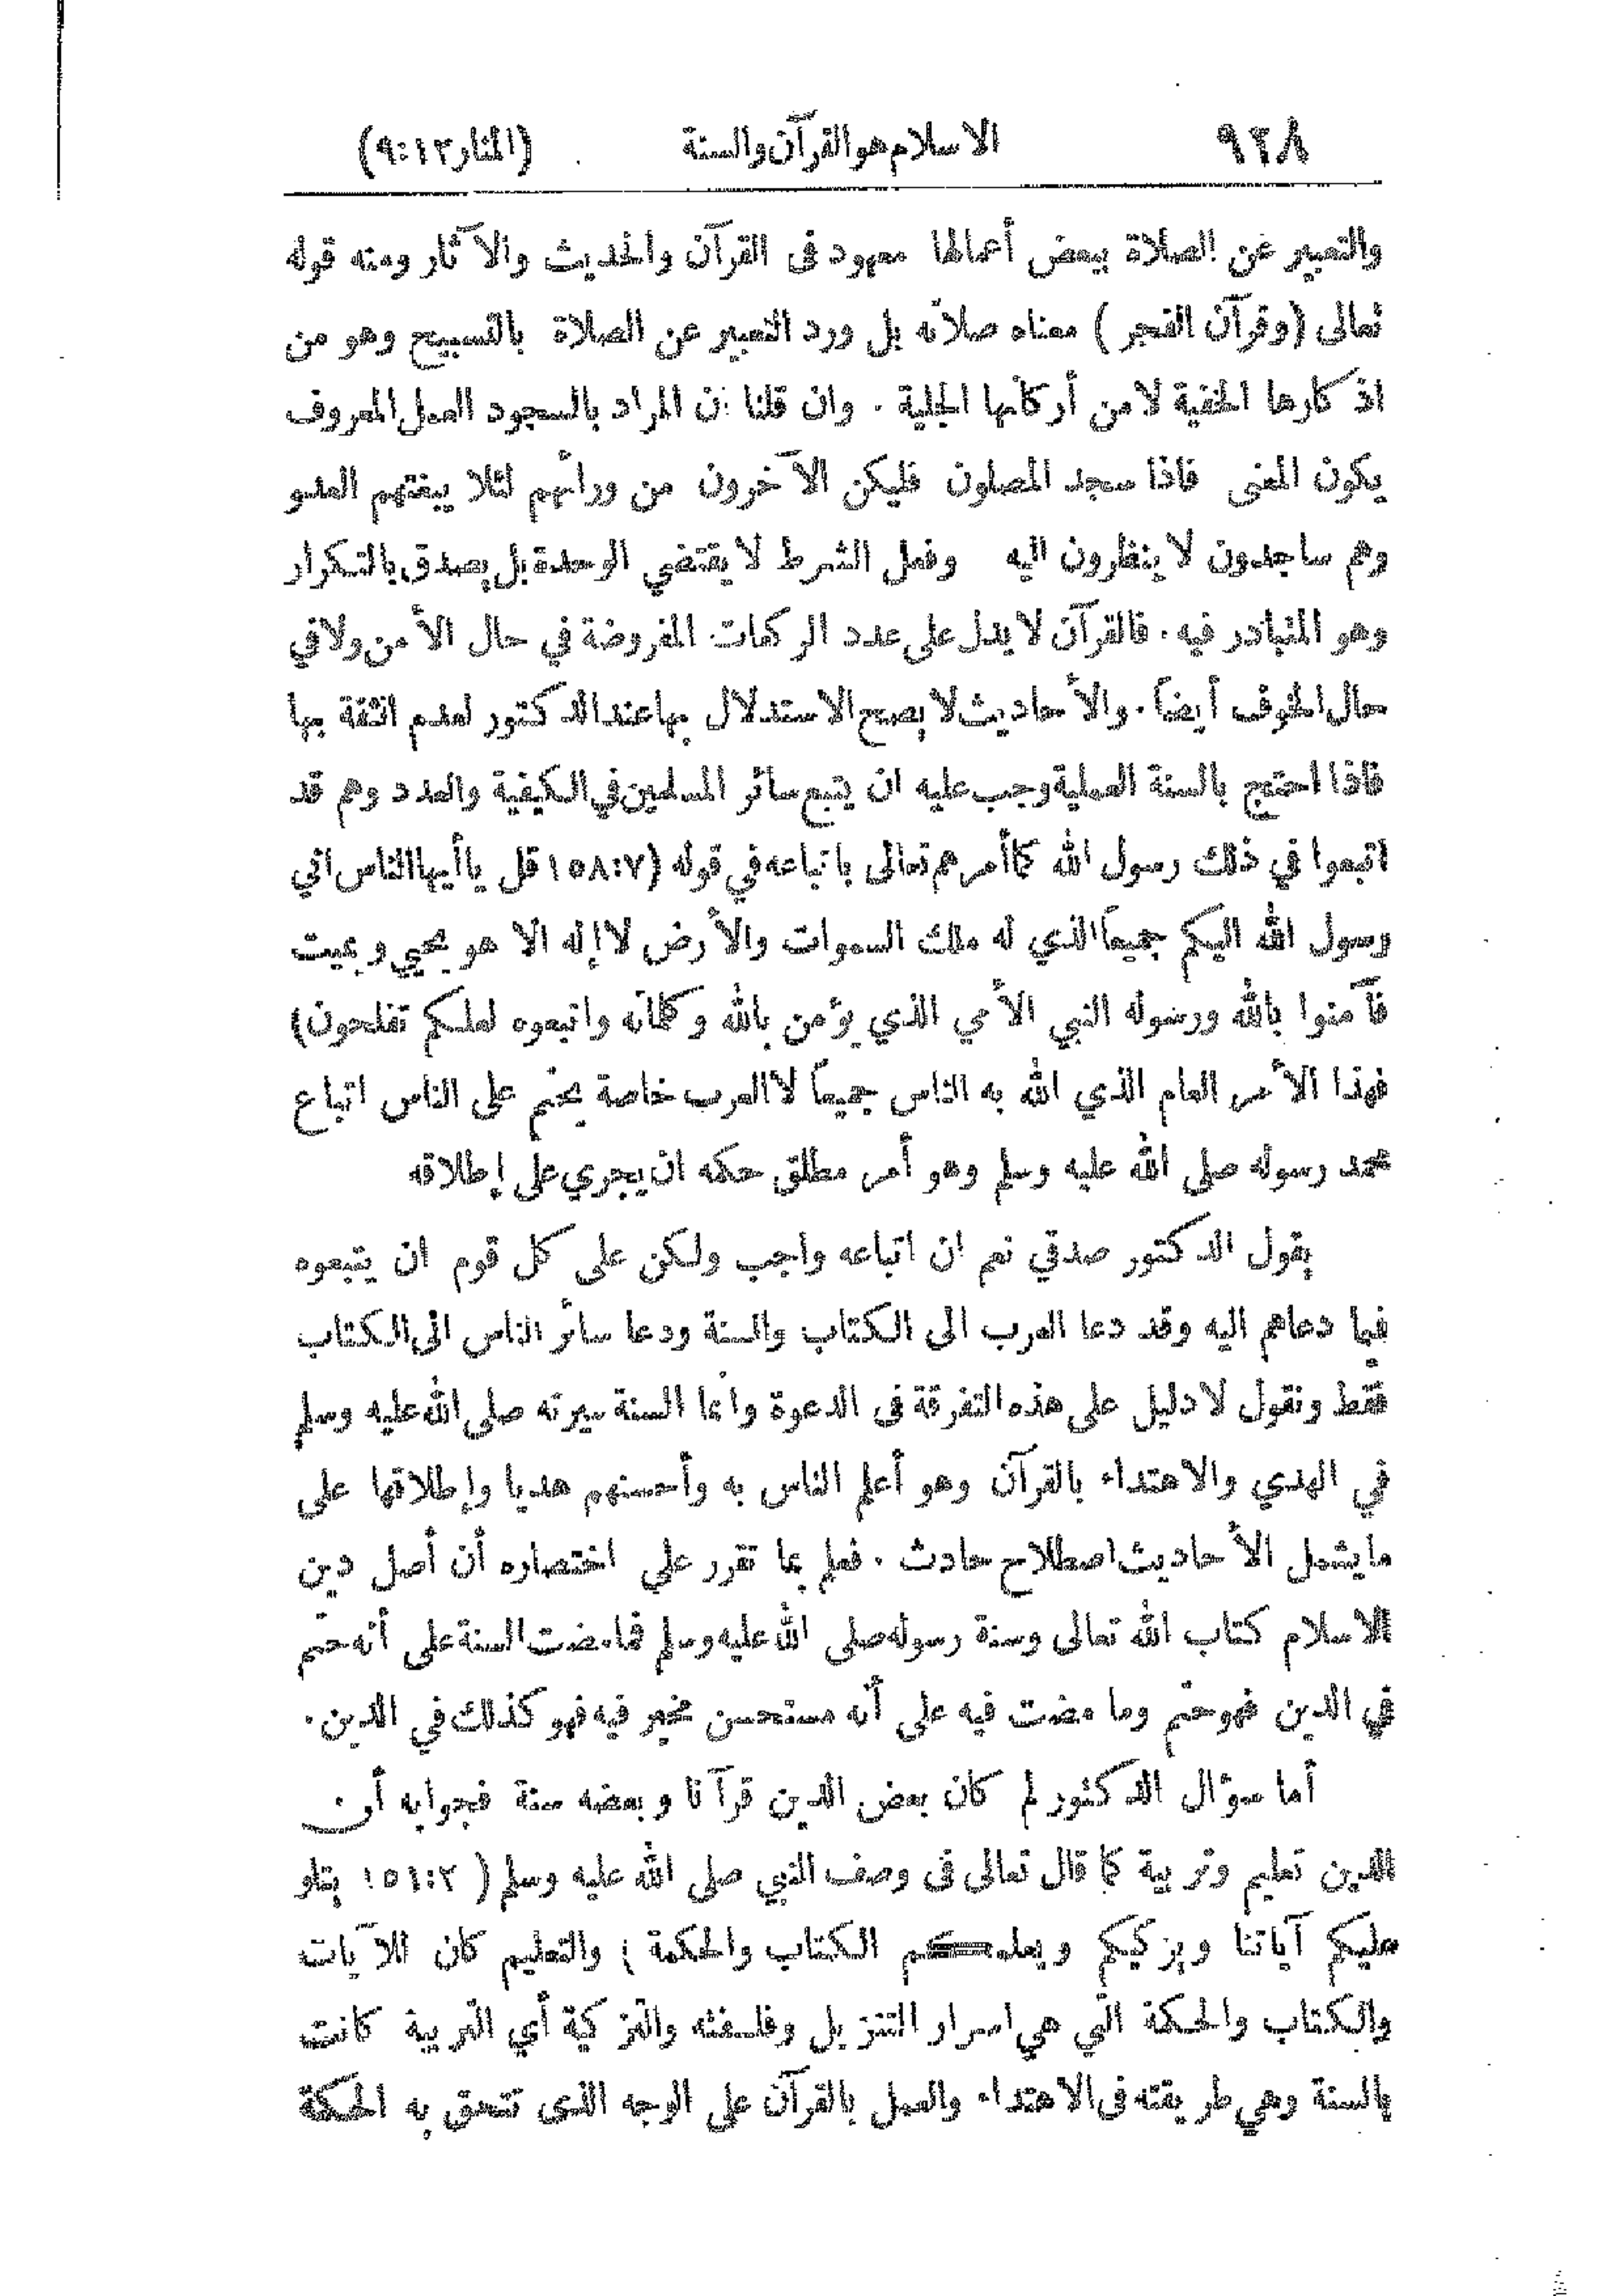 ٩٢٨ الاسلام هو القرآن والسنة (المنار ١٢:٩)
والتعبير عن الصلاة ببعض أعمالها معهود فى القرآن والحديث والآثار ومنه قوله
تعالى (وقرآن الفجر) معناه صلاته بل ورد التعبير عن الصلاة بالتسبيح وهو من
اذكارها الخفية لا من أركانها الجلية . وان قلنا ان المراد بالسجود العمل المعروف
يكون المعنى فاذا سجد المصلون فليكن الآخرون من ورائهم لئلا يبغتهم العدو
وهم ساجدون لا ينظرون اليه وفعل الشرط لا يقتضي الوحدة بل يصدق بالتكرار
وهو المتبادر فيه . فالقرآن لا يدل على عدد الركعات المفروضة في حال الأمن ولا في
حال الخوف أيضاً . والأحاديث لا يصح الاستدلال بها عند الدكتور لعدم الثقة بها
فاذا احتج بالسنة العملية وجب عليه ان يتبع سائر المسلمين في الكيفية والعدد وهم قد
اتبعوا في ذلك رسول الله كما أمرهم تعالى باتباعه في قوله (١٥٨:٧ قل يا أيها الناس اني
رسول الله اليكم جميعاً الذي له ملك السموات والأرض لا إله الا هو يحيي ويميت
فآمنوا بالله ورسوله النبي الأمي الذي يؤمن بالله وكلماته واتبعوه لعلكم تفلحون)
فهذا الأمر العام الذي الله به الناس جميعاً لا العرب خاصة يحتم على الناس اتباع
محمد رسوله صلى الله عليه وسلم وهو أمر مطلق حكمه ان يجري على إطلاقه
يقول الدكتور صدقي نعم ان اتباعه واجب ولكن على كل قوم ان يتبعوه
فيما دعاهم اليه وقد دعا العرب الى الكتاب والسنة ودعا سائر الناس الى الكتاب
فقط ونقول لا دليل على هذه التفرقة فى الدعوة وانما السنة سيرته صلى الله عليه وسلم
في الهدي والاهتداء بالقرآن وهو أعلم الناس به وأحسنهم هديا وإطلاقها على
ما يشمل الأحاديث اصطلاح حادث . فعلم بما تقرر على اختصاره أن أصل دين
الاسلام كتاب الله تعالى وسنة رسوله صلى الله عليه وسلم فما مضت السنة على أنه حتم
في الدين فهو حتم وما مضت فيه على أنه مستحسن مخير فيه فهو كذلك في الدين .
أما سؤال الدكتور لم كان بعض الدين قرآنا وبعضه سنة فجوابه أن
الدين تعليم وتربية كما قال تعالى فى وصف النبي صلى الله عليه وسلم ( ١٥١:٢ يتلو
عليكم آياتنا ويزكيكم ويعلمكم الكتاب والحكمة ) والتعليم كان للآيات
والكتاب والحكمة التي هي اسرار التنزيل وفلسفته والتزكية أي التربية كانت
بالسنة وهي طريقته فى الاهتداء والعمل بالقرآن على الوجه الذى تتحقق به الحكمة